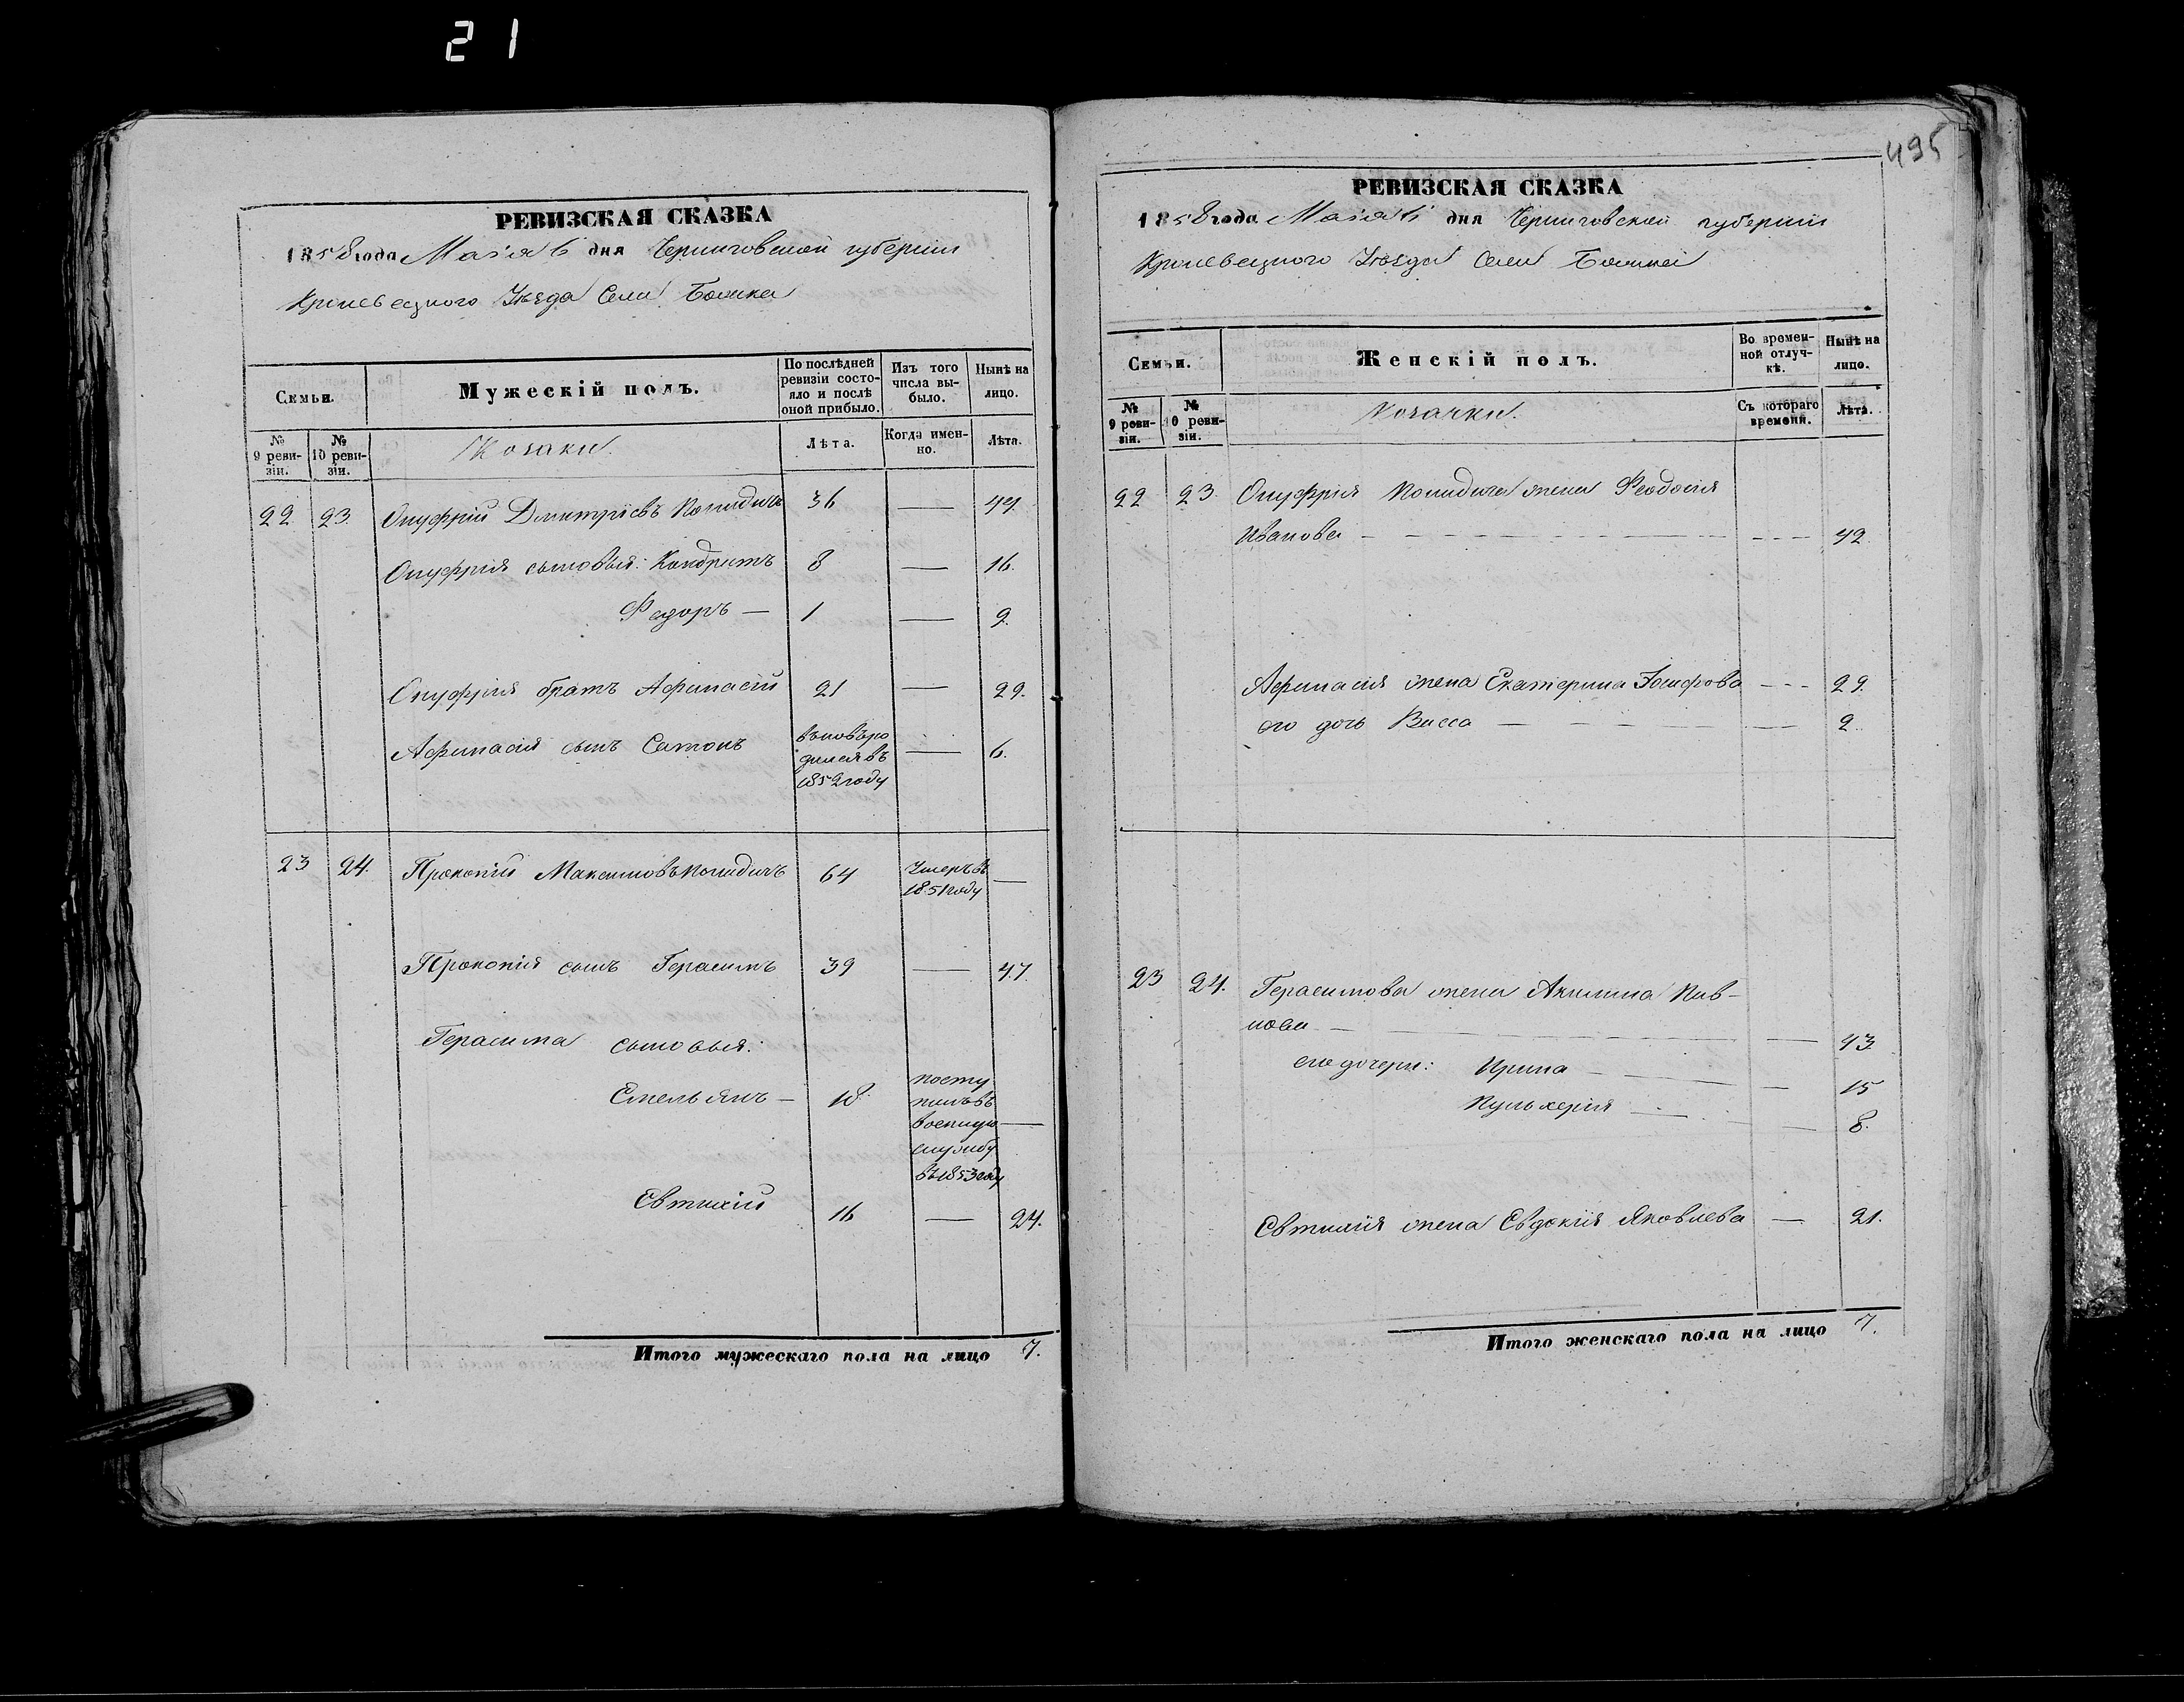 21
495
РЕВИЗСКАЯ СКАЗКА
1858 года Маія 6 дня Черниговской губерніи
Кролевецкого Уѣзда Села
Семьи.
Мужескій полъ.
По послѣдней ревизіи состояло и послѣ оной прибыло.
Изъ того числа выбыло.
Нынѣ на лицо.
№ 9 ревизіи.
№ 10 ревизіи.
Козаки.
Лѣта.
Когда именно.
Лѣта.
22. 23. Онуфрій Дмитріевъ 36 — 44.
Онуфрія сыновья: Кондратъ 8 — 16.
Федоръ — 1 — 9.
Онуфрія братъ Афанасій 21 — 29.
Афанасія сынъ Самонъ вновьро — 6.
дился въ
1852 году
23 24. Прокопій Максимовъ 64 Умеръ въ —
1851 году
Прокопія сынъ Герасимъ 39 — 47.
Герасима сыновья:
Емельянъ — 18. посту
пилъ въ
военную —
службу
въ 1853 году
Евтихій 16 — 24.
Итого мужескаго пола на лицо 7.
РЕВИЗСКАЯ СКАЗКА
1858 года Маія 6 дня Черниговской губерніи
Кролевецкого Уѣзда Села
Семьи.
Женскій полъ.
Во временной отлучкѣ.
Нынѣ на лицо.
№ 9 ревизіи.
№ 10 ревизіи.
Козачки.
Съ котораго времени.
Лѣта.
22 23. Онуфрія жена Феодосія
Иванова - - - 42.
Афанасія жена Екатерина Іосифова - - - 29.
его дочь Васса — — 2.
23 24. Герасимова жена Акилина Пав-
лова — — 43.
его дочери: Ирина — — 15
Пульхерія — — 8.
Евтихія жена Евдокія Яковлева — 21.
Итого женскаго пола на лицо 7.